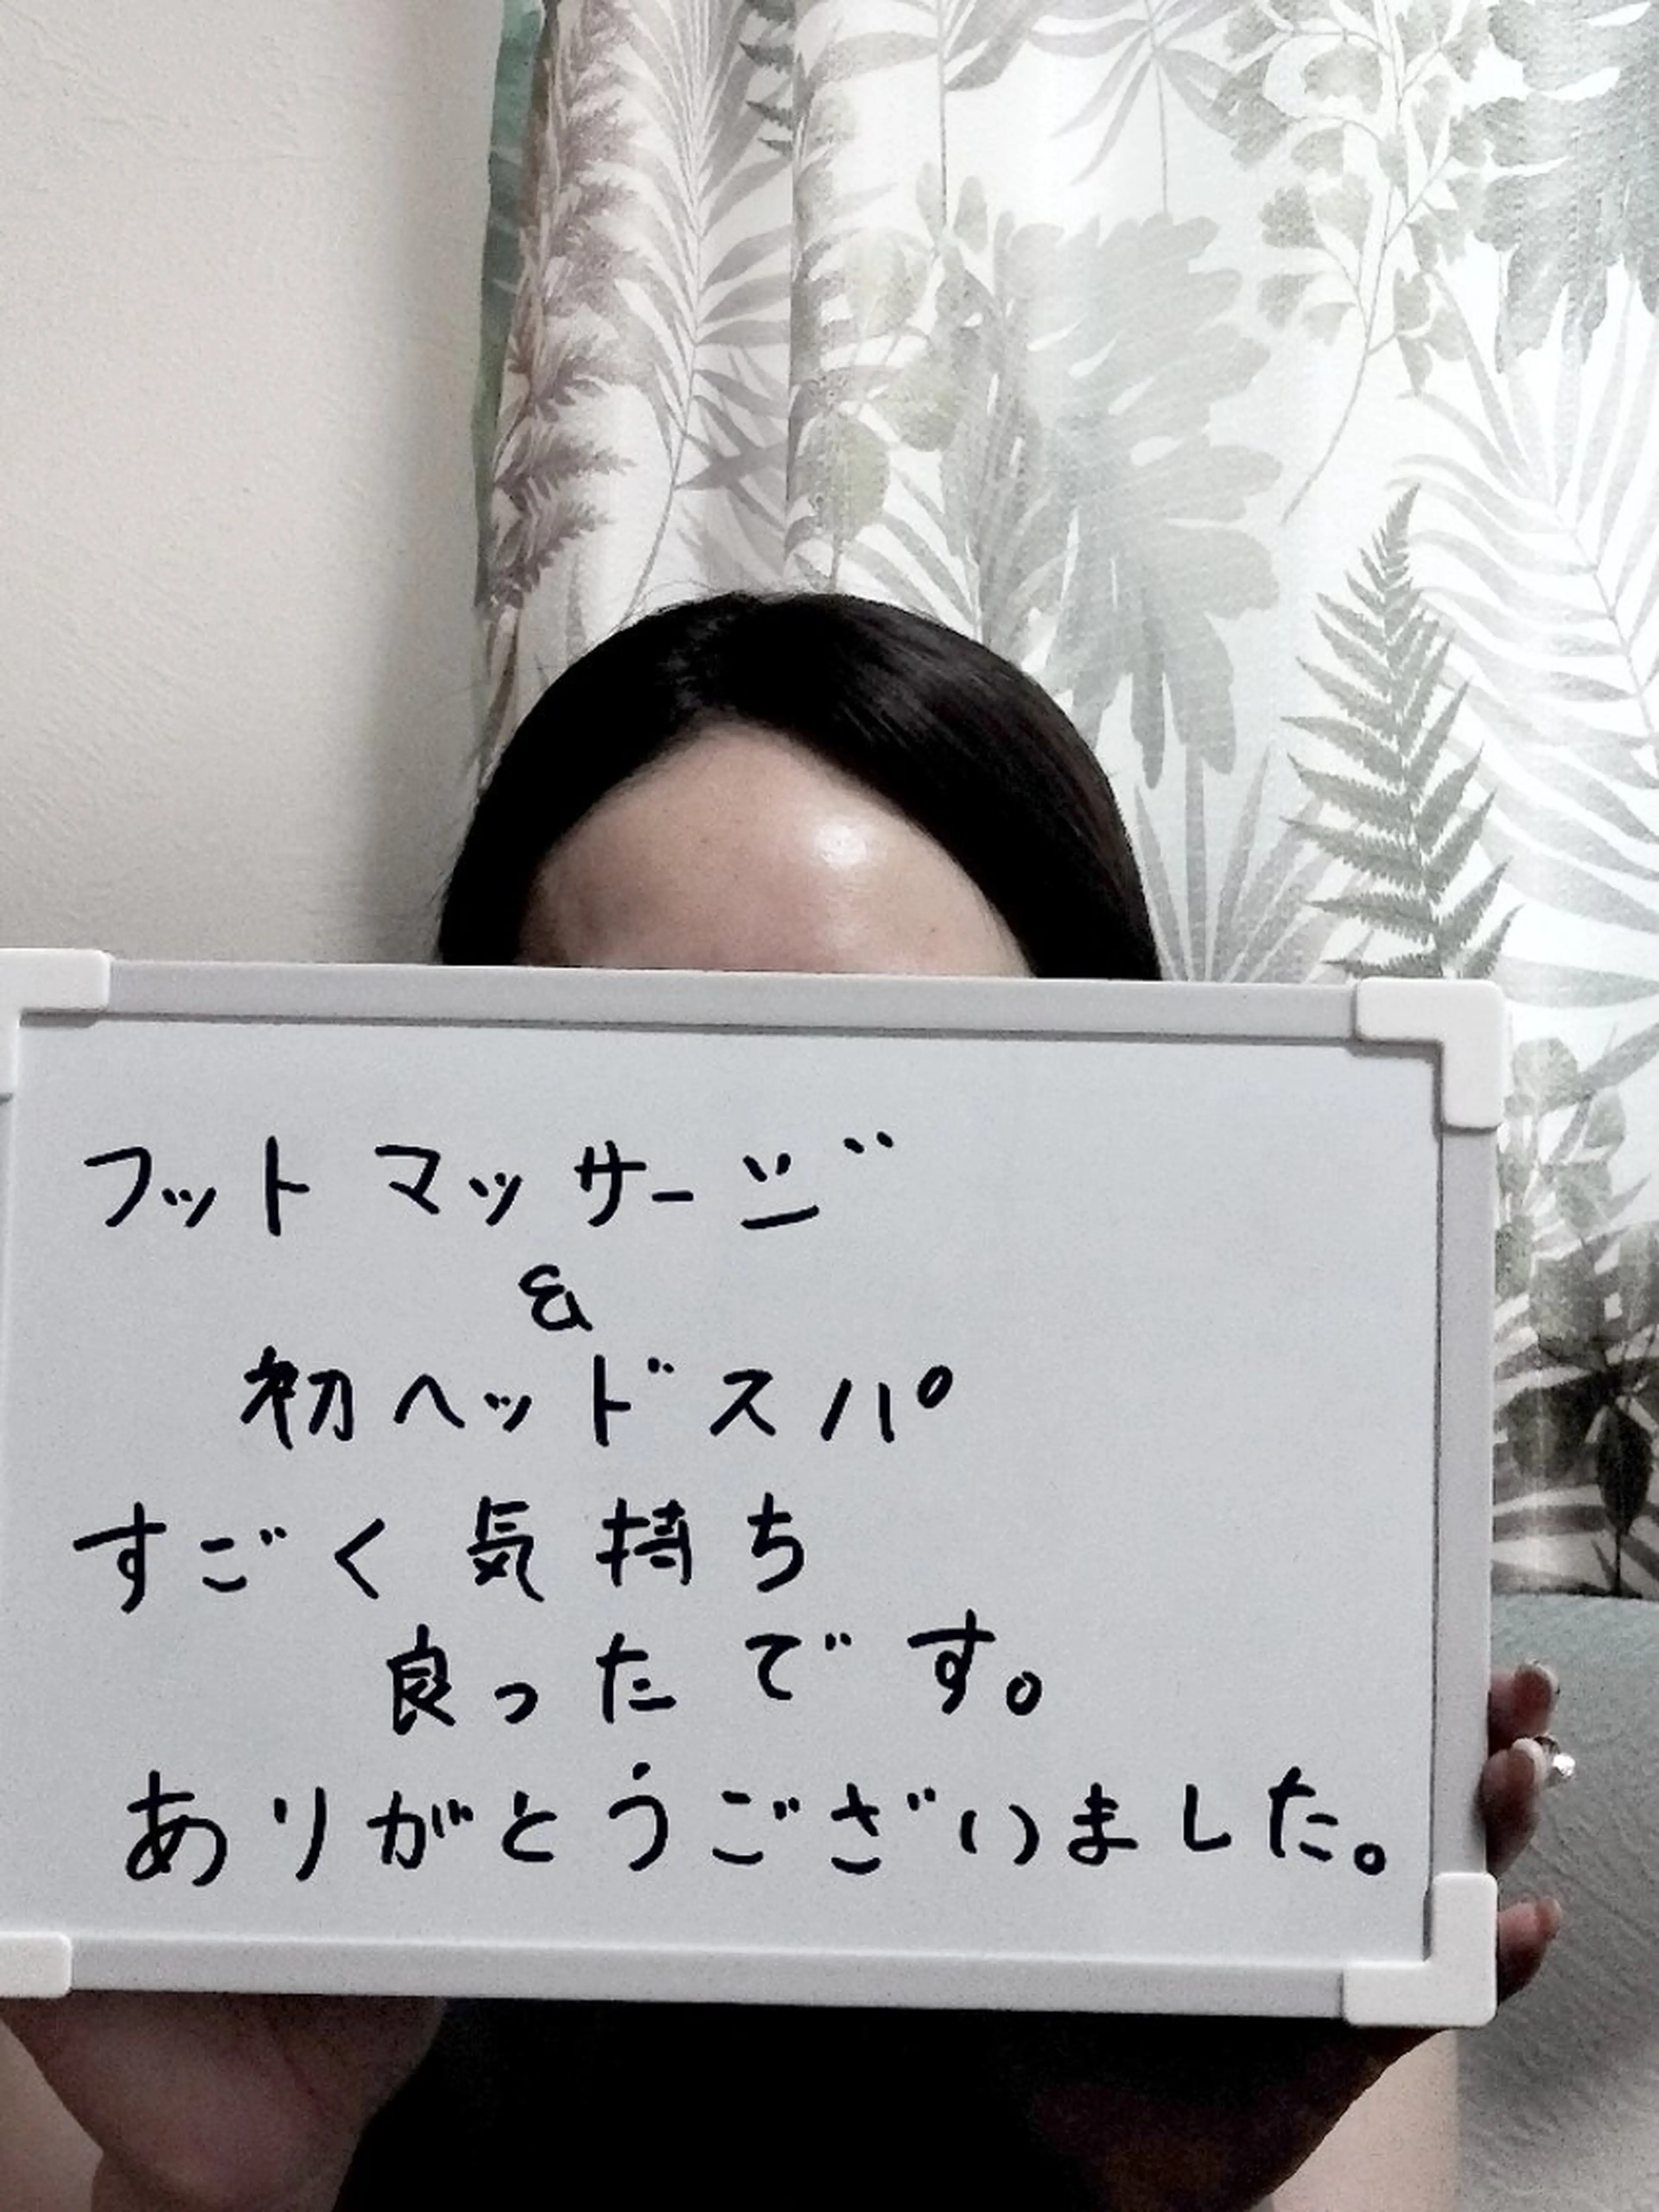 フットマッサージ
&
初ヘッドスパ
すごく気持ち
良ったです。
ありがとうございました。